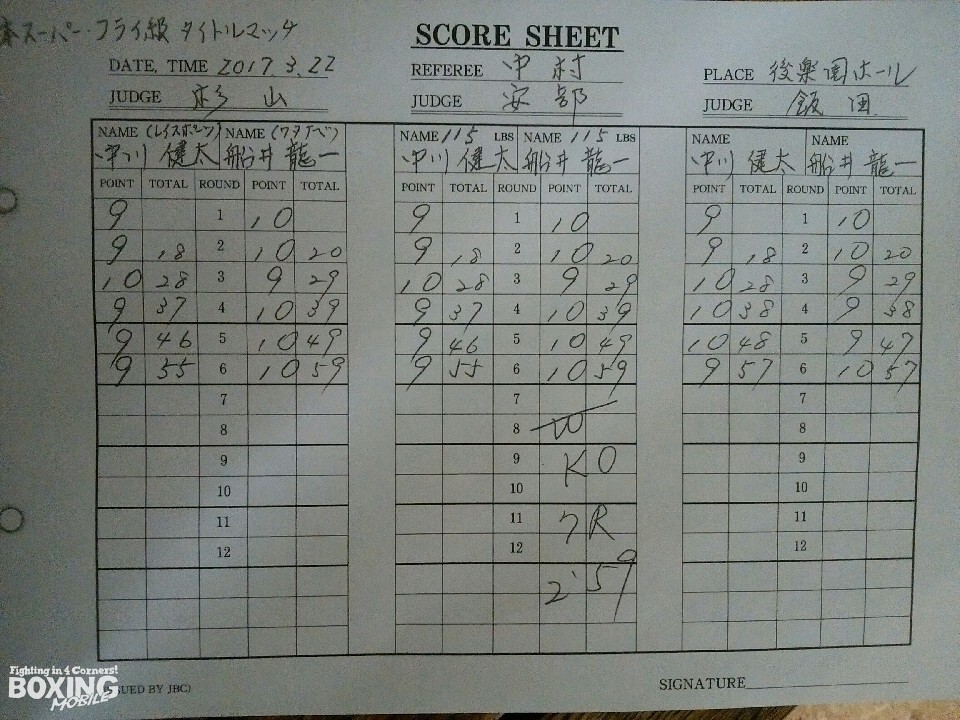 本スーパー・フライ級 タイトルマッチ
SCORE SHEET
DATE, TIME 2017.3.22 REFEREE 中村 PLACE 後楽園ホール
JUDGE 杉山 JUDGE 安部 JUDGE 飯田
NAME (レイスポーツ) NAME (ワタナベ) NAME 115 LBS NAME 115 LBS NAME NAME
中川 健太 船井 龍一 中川 健太 船井 龍一 中川 健太 船井 龍一
POINT TOTAL ROUND POINT TOTAL POINT TOTAL ROUND POINT TOTAL POINT TOTAL ROUND POINT TOTAL
9 1 10 9 1 10 9 1 10
9 18 2 10 20 9 18 2 10 20 9 18 2 10 20
10 28 3 9 29 10 28 3 9 29 10 28 3 9 29
9 37 4 10 39 9 37 4 10 39 10 38 4 9 38
9 46 5 10 49 9 46 5 10 49 10 48 5 9 47
9 55 6 10 59 9 55 6 10 59 9 57 6 10 57
7 7 7
8 8 8
9 9 KO 9
10 10 10
11 11 7R 11
12 12 12
2'59
Fighting in 4 Corners!
BOXING
MOBILE
SUED BY JBC)
SIGNATURE